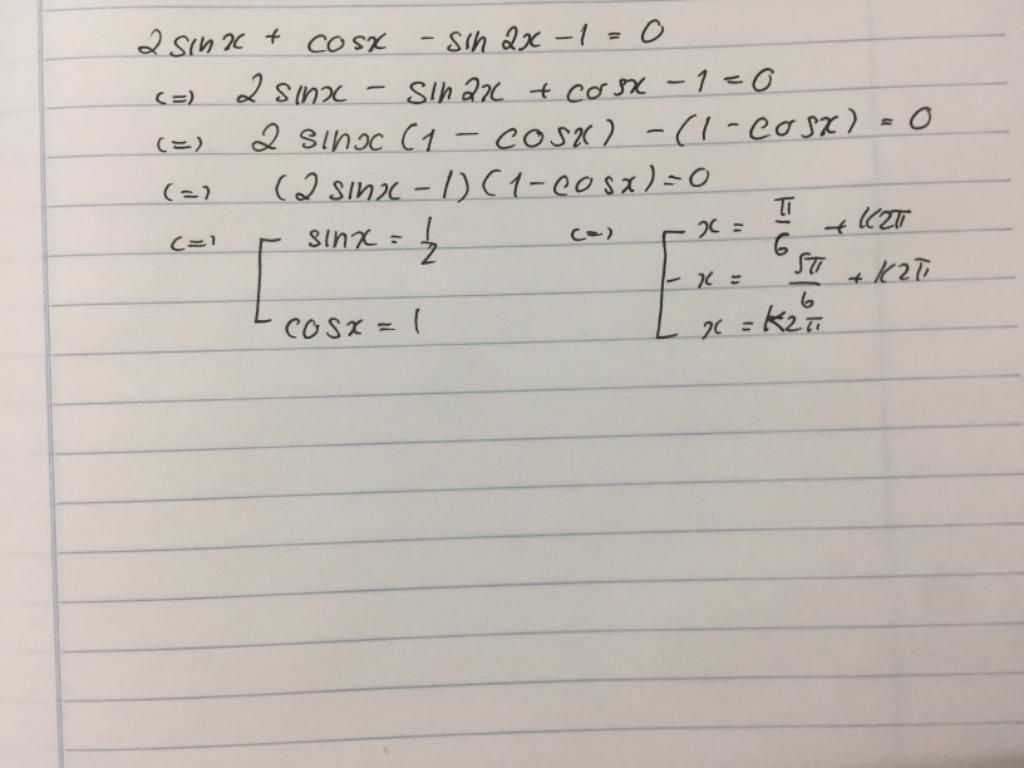 2 sinx + cosx - sin 2x - 1 = 0
<=> 2 sinx - sin 2x + cosx - 1 = 0
<=> 2 sinx (1 - cosx) - (1 - cosx) = 0
<=> (2 sinx - 1)(1 - cosx) = 0
<=> [ sinx = 1/2 <=> [ x = π/6 + k2π
x = 5π/6 + k2π
cosx = 1 x = k2π